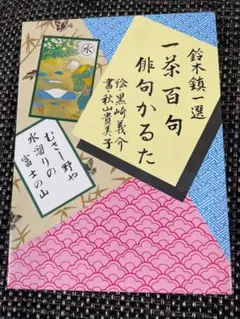 鈴木鎮一選
一茶百句
俳句かるた
絵・黒崎義介
書・秋山貴美子
水
むさし野や
水溜りの
富士の山